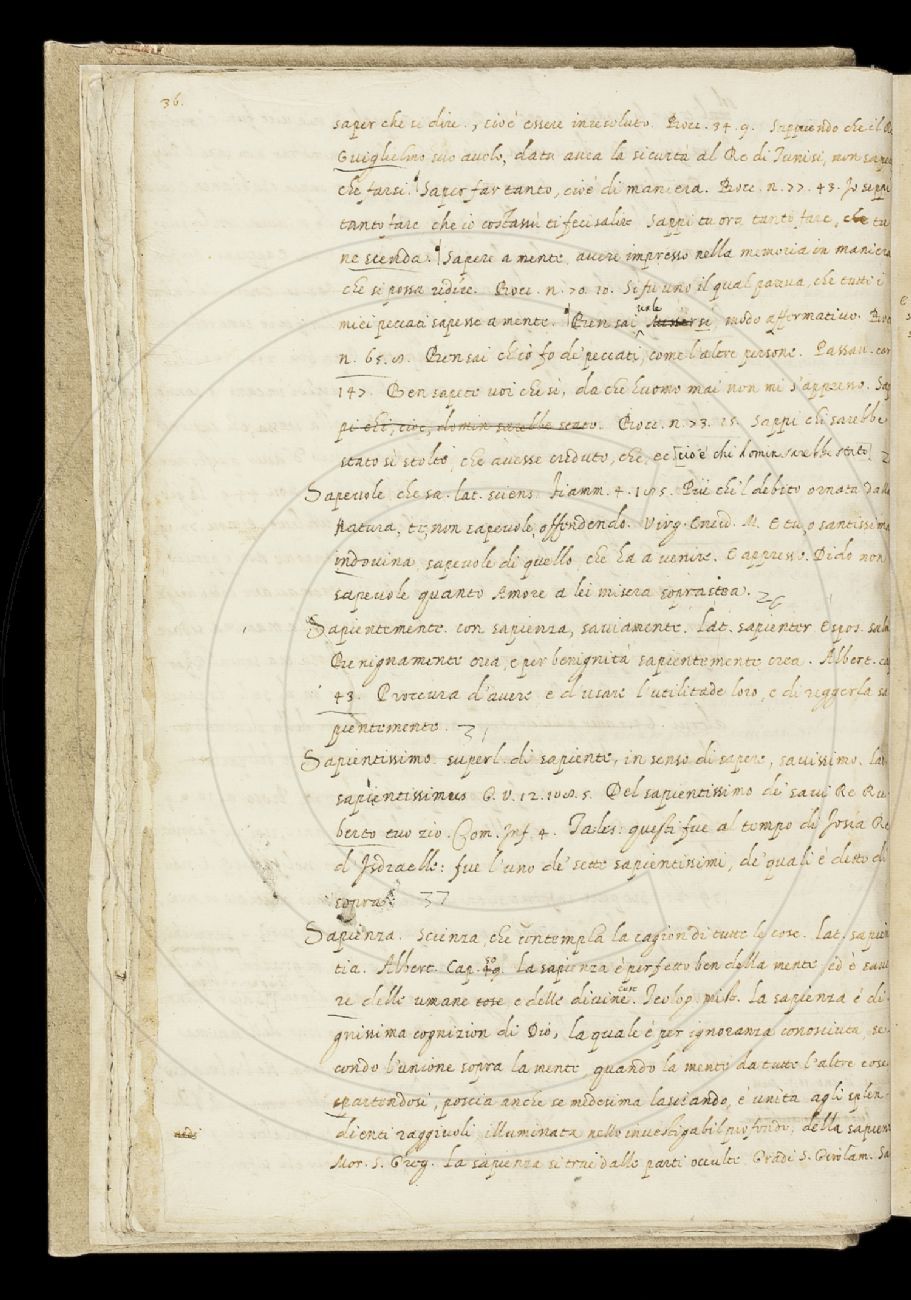 36.
saper che si dire., cioè essere inresoluto. Bocc. 34. 9. Sappiendo che il Re
Guiglielmo suo avolo, data avea la sicurtà al Re di Tunisi, non sapea
che farsi. Saper far tanto, cioè di maniera. Bocc. n. 77. 43. Io seppi
tanto fare che io costassù ti feci salire Sappi tu ora tanto fare, che tu
ne scenda. Sapere a mente, avere impresso nella memoria in maniera
che si possa ridire. Bocc. n. 70. 10. Si fu uno il qual pareva, che tutti i
miei peccati sapesse a mente. Ben sai vale modo affermativo. Bocc
n. 65. Ben sai ch'io fo de' peccati, come l'altre persone. Passau. car
147. Ben sapete voi che sì, da che huomo mai non mi s'appreno. Sap
pi chi, cioè, domin sarebbe stato. Bocc. n. 73. 15. Sappi chi sarebbe
stato sì stolto, che avesse creduto, che, ec [cioè chi domin sarebbe stato]
Sapevole, che sa. lat. sciens. Fiamm. 4. 105. Più che 'l debito ornata dalla
Natura, te, non sapevole, offendendo. Virg. Eneid. M. E tu, o santissima
indovina, sapevole di quello, che ha a venire. E appresso. Dido non
sapevole quanto Amore a lei misera soprastea.
Sapientemente. con sapienza, saviamente. lat. sapienter Espos. salm
Benignamente crea, e per benignità sapientemente crea. Albert. cap
43. Proccura d'avere e d'usare l'utilitade loro, e di reggerla sa
pientemente. 31
Sapientissimo superl. di sapiente, in senso di sapere, savissimo. lat.
sapientissimus G. V. 12. 108. 5. Del sapientissimo de' savi Re Ru
berto tuo zio. Com. Inf. 4. Tales: questi fue al tempo di Josia Re
d'Isdraelle: fue l'uno de' sette sapientissimi, de' quali è detto di
sopra. 37
Sapienza. Scienza, che contempla la cagion di tutte le cose. lat. sapien
tia. Albert. Cap. 50 La sapienza è perfetto ben della mente, ed è save
re delle umane cose e delle divine. Teolog. mist. La sapienza è di-
gnissima cognizion di Dio, la quale è per ignoranza conosciuta, se-
condo l'unione sopra la mente, quando la mente da tutte l'altre cose
spartendosi, poscia anche se medesima lasciando, è unita agli splen-
dienti raggiuoli, illuminata nello investigabil profondo, della sapienza
Mor. S. Greg. La sapienza si trai dalle parti occulte. Gradi S. Girolam. Sa